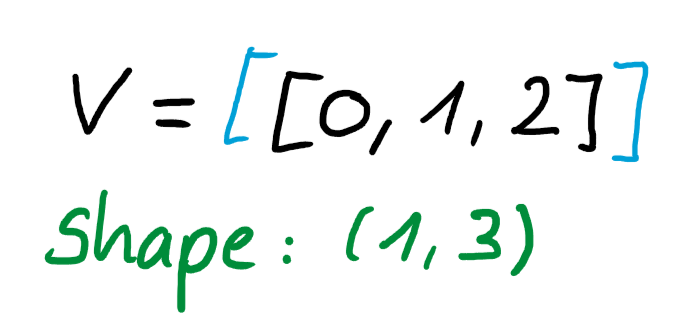 V = [[0, 1, 2]]
shape: (1, 3)